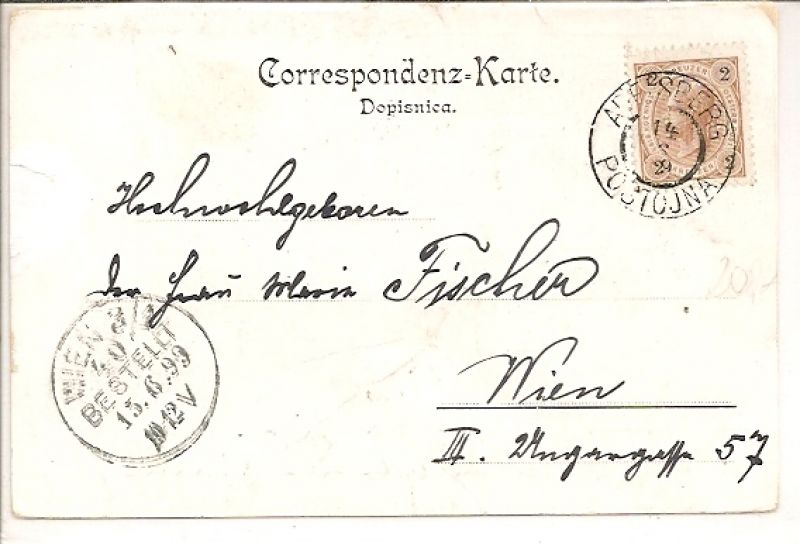 Correspondenz-Karte.
Dopisnica.
2 KREUZER 2
2 2
ADELSBERG
POSTOJNA
Hochwohlgeboren
der Frau Marie Fischer
Wien
III. Ungargasse 57
WIEN 3/1
40
BESTELLT
13.6.99
V